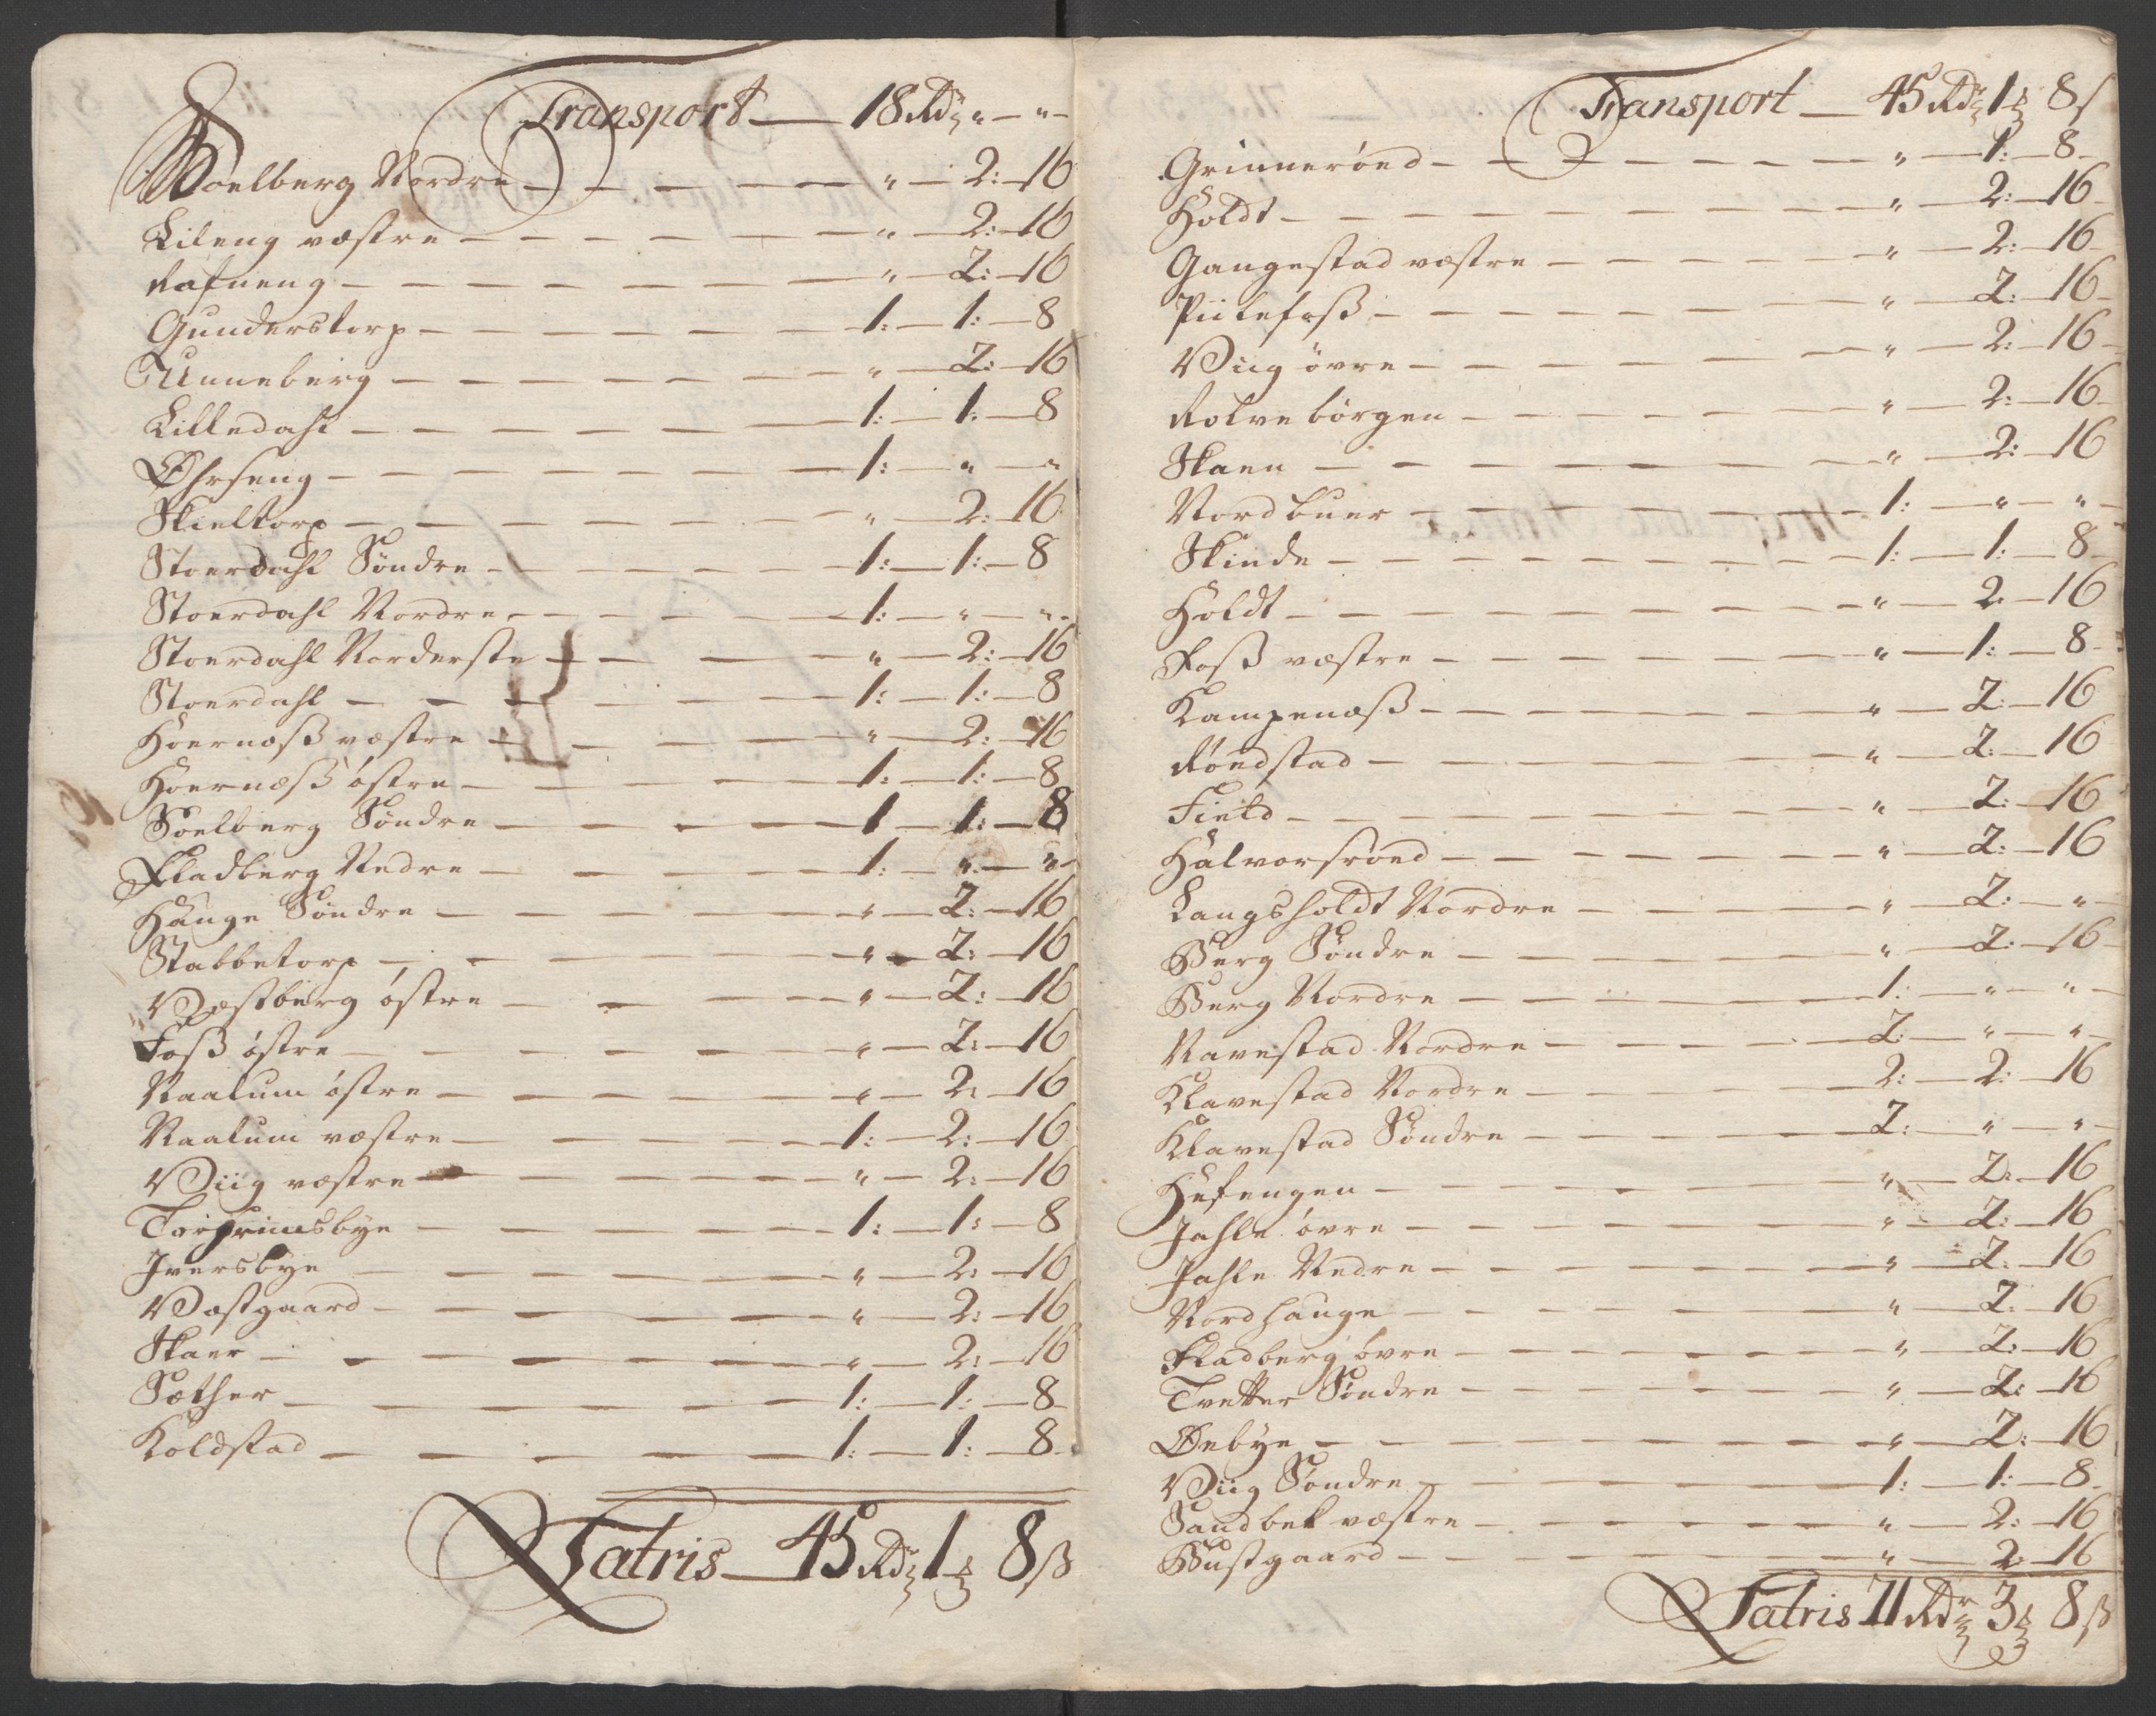 Transport — 18 Rdr „ — „ —
Soelberg Nordre — „ — 2: — 16
Lileng væstre — „ — 2: — 16
Rafneng — „ — 2: — 16
Gunderstorp — 1: — 1: — 8
Unneberg — „ — 2: — 16
Lilledahl — 1: — 1: — 8
Øhrseng — 1: — „ — „
Skieltorp — „ — 2: — 16
Stoerdahl Søndre — 1: — 1: — 8
Stoerdahl Nordre — 1: — „ — „
Stoerdahl Norderste — „ — 2: — 16
Stoerdahl — 1: — 1: — 8
Hoernæsß væstre — „ — 2: — 16
Hoernæsß østre — 1: — 1: — 8
Soelberg Søndre — 1 — 1: — 8
Fladberg Nedre — 1: — „ — „
Hauge Søndre — „ — 2: — 16
Stabbetorp — „ — 2: — 16
Væstberg østre — „ — 2: — 16
Foß østre — „ — 2: — 16
Naalum østre — „ — 2: — 16
Naalum væstre — 1: — 2: — 16
Viig væstre — „ — 2: — 16
Torgrimsbye — 1: — 1: — 8
Iversbye — „ — 2: — 16
Væstgaard — „ — 2: — 16
Skaer — „ — 2: — 16
Sæther — 1: — 1: — 8
Koldstad — 1: — 1: — 8
Latris — 45 Rdr 1 ℥ 8 ß
Transport — 45 Rdr 1 ℥ 8 ß
Grinnerönd — „ — 1: — 8
Holdt — „ — 2: — 16
Gangestad væstre — „ — 2: — 16
Piikefoß — „ — 2: — 16
Viig övre — „ — 2: — 16
Rolvebörgen — „ — 2: — 16
Skaen — „ — 2: — 16
Nordbuer — 1: — „ — „
Skinde — 1: — 1: — 8
Holdt — „ — 2 — 16
Foß væstre — „ — 1: — 8
Kampenæß — „ — 2: — 16
Röndstad — „ — 2: — 16
Field — „ — 2: — 16
Halvorsrönd — „ — 2: — 16
Langsholdt Nordre — „ — 2: — „
Berg Søndre — „ — 2: — 16
Berg Nordre — 1: — „ — „
Navestad Nordre — 2: — „ — „
Klavestad Nordre — 2: — 2: — 16
Klavestad Søndre — 2: — „ — „
Hefengen — „ — 2: — 16
Jahle øvre — „ — 2: — 16
Jahle Nedre — „ — 2: — 16
Nordhauge — „ — 2: — 16
Fladberg övre — „ — 2: — 16
Tvetter Søndre — „ — 2: — 16
Øebye — „ — 2: — 16
Viig Søndre — 1: — 1: — 8
Sandbek væstre — „ — 2: — 16
Bustgaard — „ — 2: — 16
Latris 71 Rdr 3 ℥ 8 ß